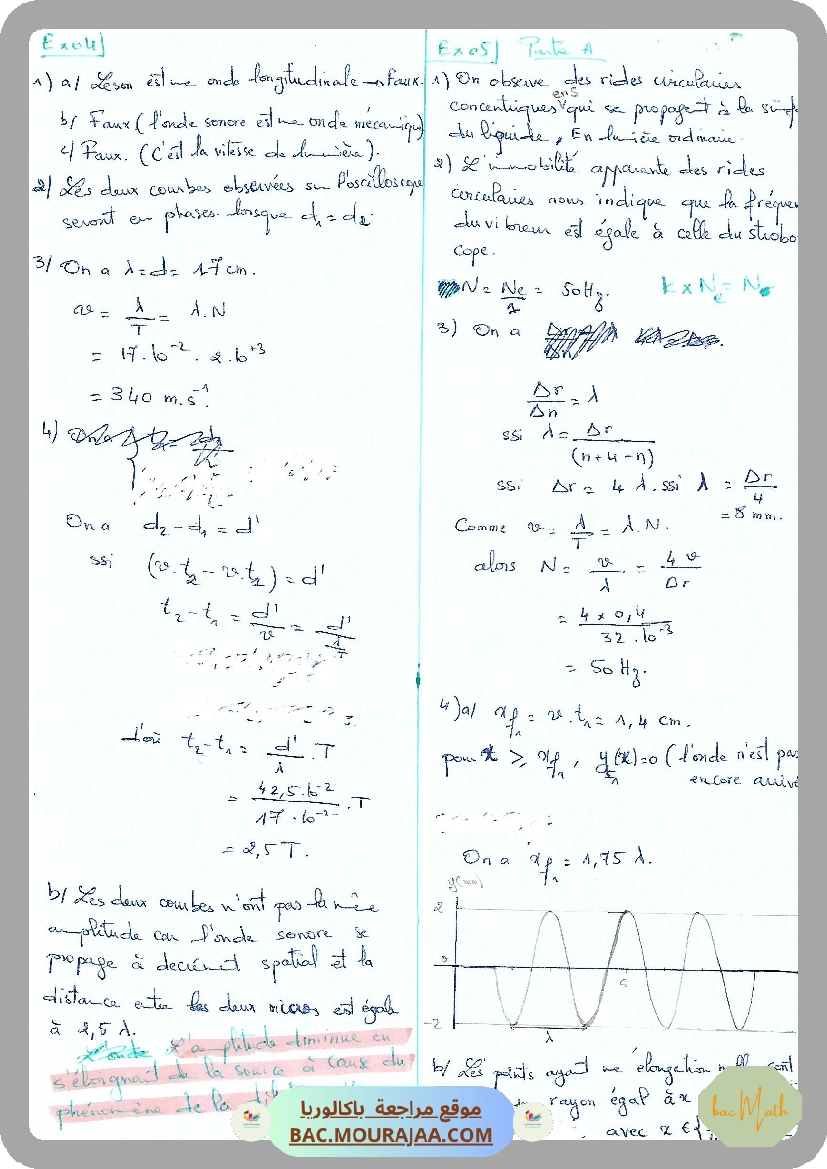 Exo4)
1) a/ Leson est une onde longitudinale → Faux.
b/ Faux (l'onde sonore est une onde mécanique)
c/ Faux. (C'est la vitesse de lumière).
2) Les deux courbes observées sur l'oscilloscope
seront en phases lorsque d₁ = d₂.
3/ On a λ = d = 17 cm.
v = λ/T = λ.N
= 17.10⁻² . 2.10⁺³
= 340 m.s⁻¹.
4)
On a d₂ - d₁ = d'
ssi (v.t₂ - v.t₂) = d'
t₂ - t₁ = d'/v = d'/(λ/T)
d'où t₂-t₁ = d'/λ . T
= 42,5.10⁻²/17.10⁻² . T
= 2,5 T.
b/ Les deux courbes n'ont pas la même
amplitude car l'onde sonore se
propage à deciémet spatial et la
distance entre les deux micros est égale
à 2,5 λ.
L'amplitude diminue en
s'éloignant de la source à cause du
phénomène de la
Exo5) Partie A
1) On observe des rides circulaires
concentriques en S qui se propagent à la surf
du liquide, En lumière ordinaire.
2) L'immobilité apparente des rides
circulaires nous indique que la fréquen
du vibreur est égale à celle du strobo
cope.
N = Ne/1 = 50 Hz. k x Ne = N
3) On a
Δr/Δn = λ
ssi λ = Δr/(n+4-n)
ssi Δr = 4 λ. ssi λ = Δr/4
= 8 mm.
Comme v = λ/T = λ.N.
alors N = v/λ = 4v/Δr
= 4 x 0,4/32.10⁻³
= 50 Hz.
4) a/ xf₁ = v.t₁ = 1,4 cm.
pour x ≥ xf₁, y(x) = 0 (l'onde n'est pas
encore arrivé
On a xf₁ = 1,75 λ.
y(mm)
2
0
-2
λ
b/ Les points ayant une élongation nulle sont
rayon égal à x
avec x ∈ {
موقع مراجعة باكالوريا
BAC.MOURAJAA.COM
bac Math